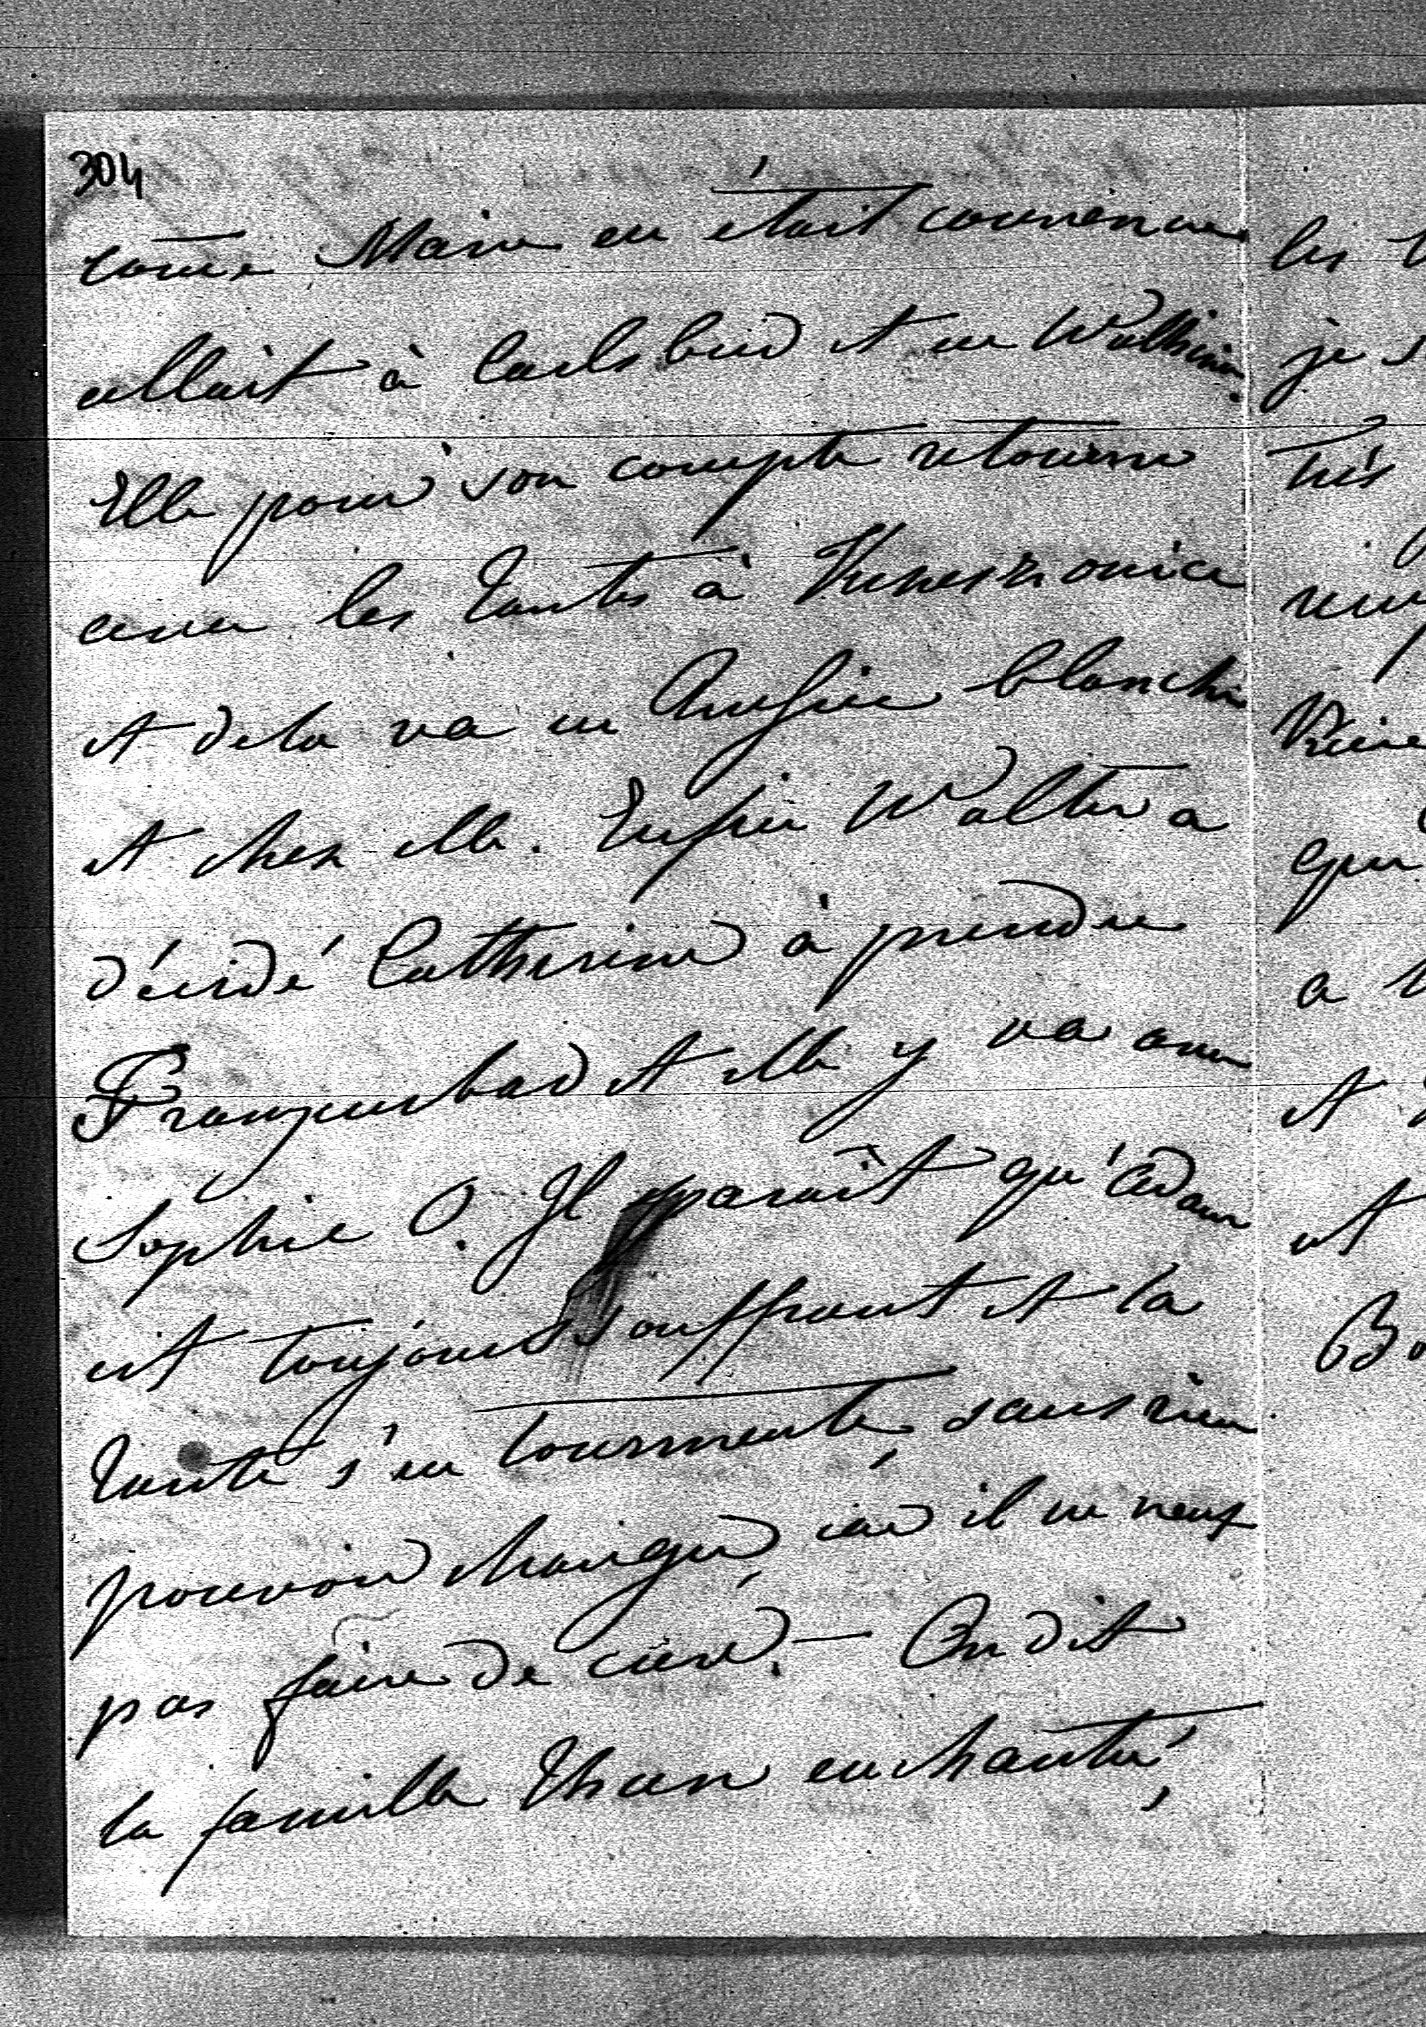 304
come Marie en était convenue
allait à Carlsbad et en
Elle pour son compte retourne
avec les Tantes à
et de là va en Russie blanche
et chez elle. Enfin Walter a
décidé Catherine à prendre
Franzensbad et elle y va avec
Sophie O. Il paraît qu'Adam
est toujours souffrant et la
Tante s'en tourmente, sans rien
pouvoir changer, car il ne veut
pas faire de cure. — On dit
la famille Thun enchantée,
les
je
très
que
a
et
et